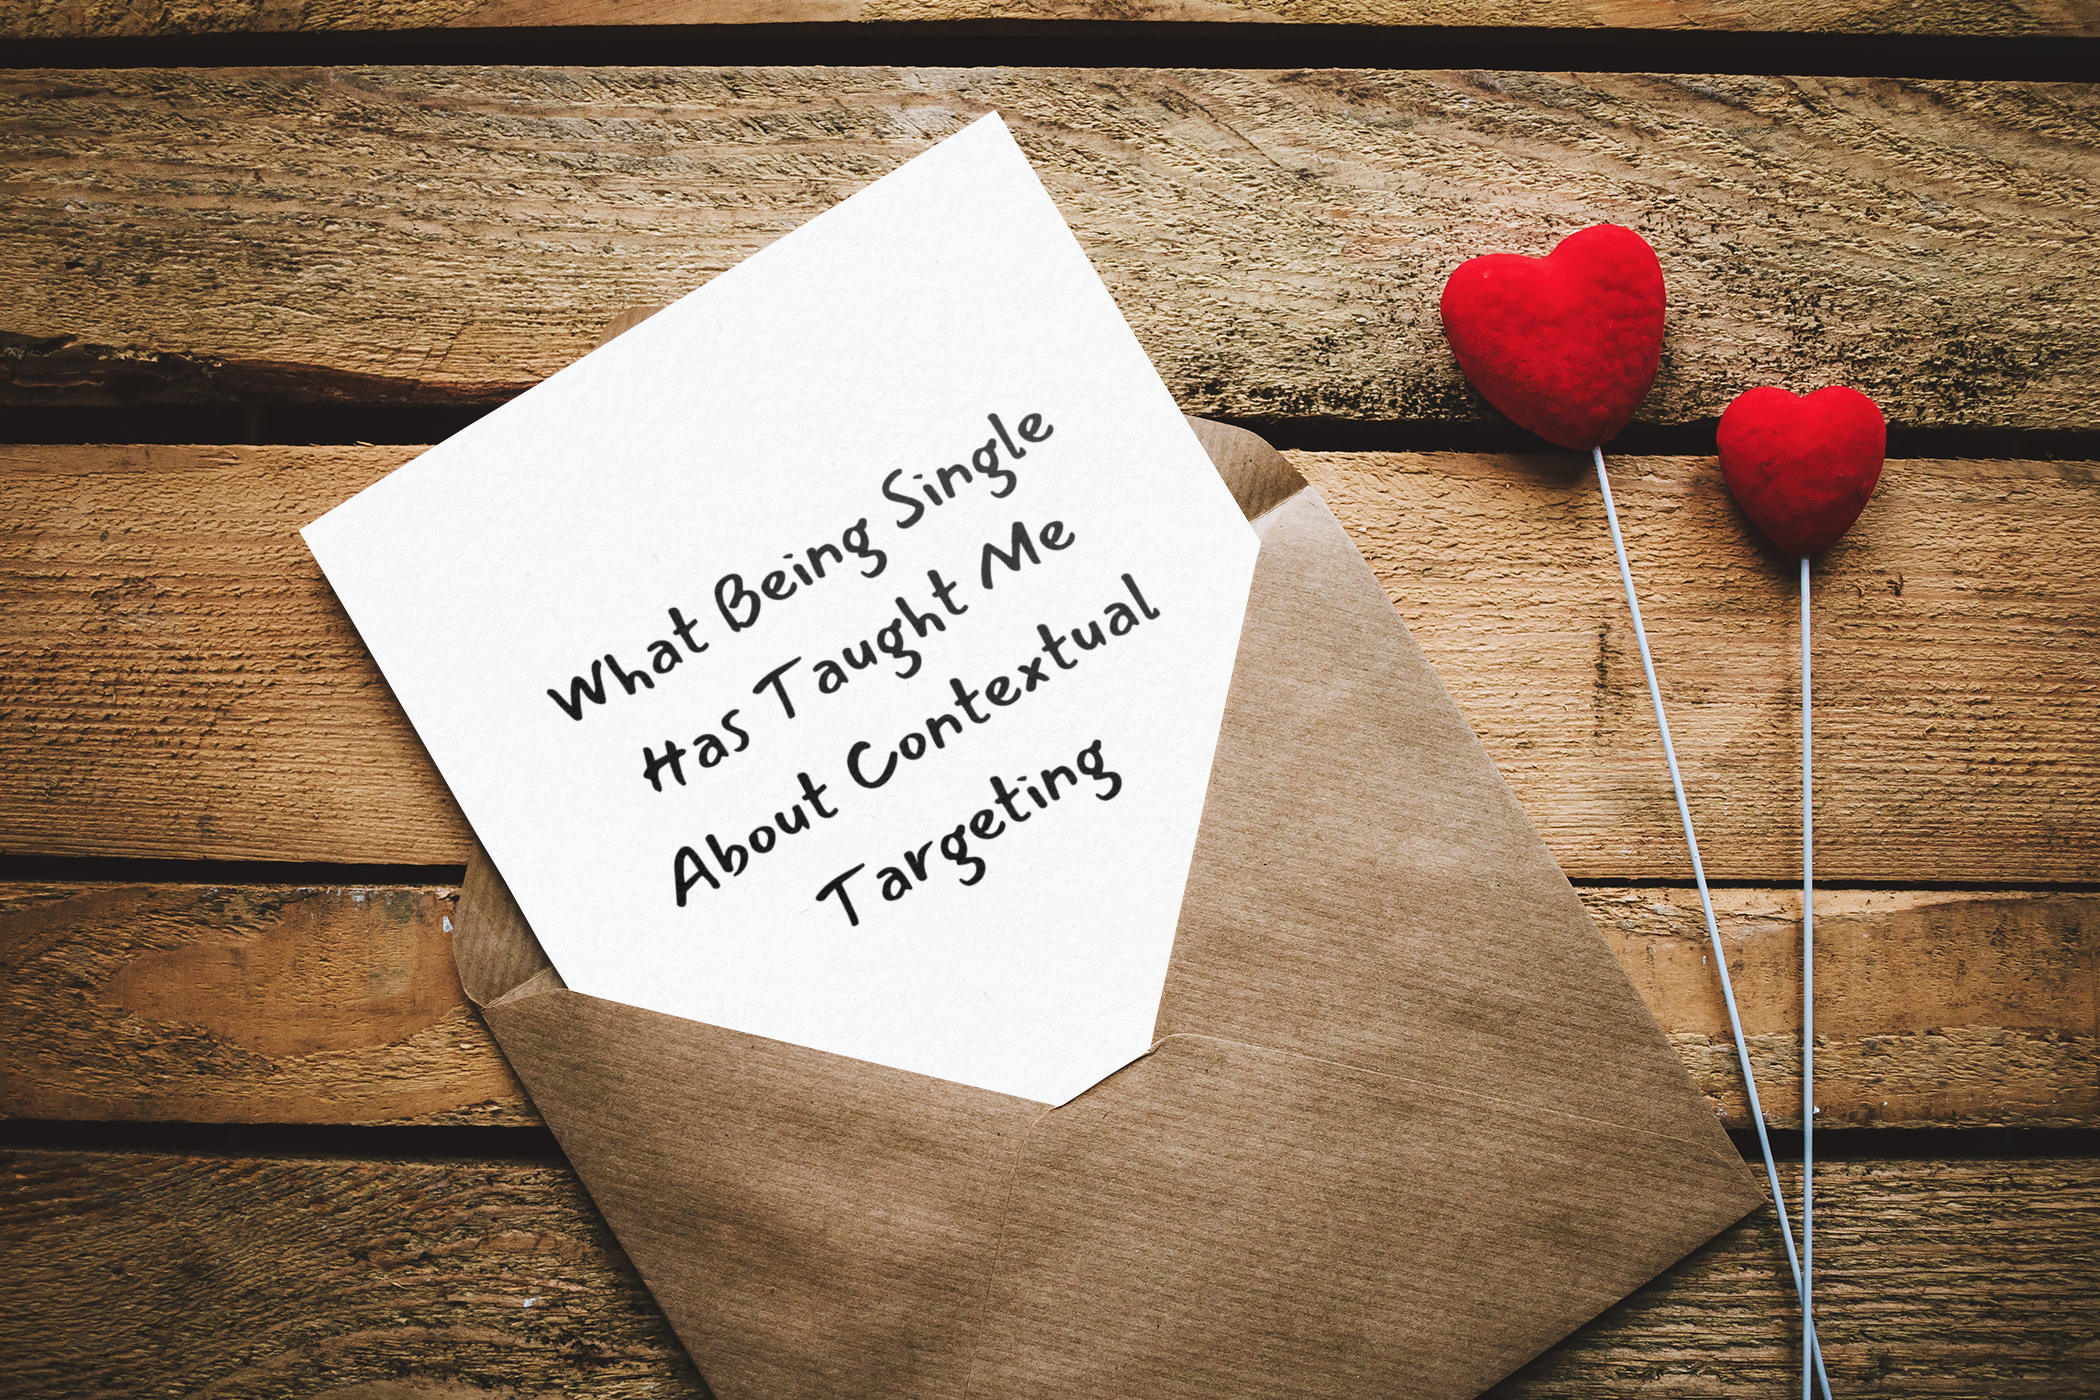 What Being Single
Has Taught Me
About Contextual
Targeting